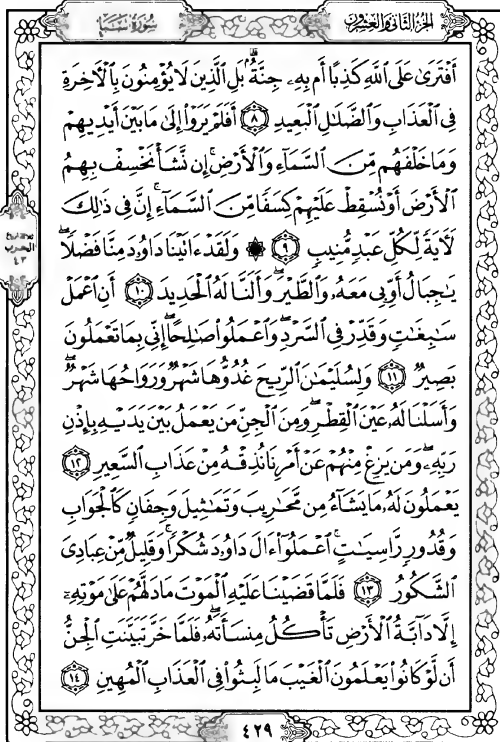 الجزء الثاني والعشرون
سورة سبأ
أَفْتَرَىٰ عَلَى ٱللَّهِ كَذِبًا أَم بِهِۦ جِنَّةٌۢ ۗ بَلِ ٱلَّذِينَ لَا يُؤْمِنُونَ بِٱلْـَٔاخِرَةِ
فِى ٱلْعَذَابِ وَٱلضَّلَـٰلِ ٱلْبَعِيدِ ٨ أَفَلَمْ يَرَوْا۟ إِلَىٰ مَا بَيْنَ أَيْدِيهِمْ
وَمَا خَلْفَهُم مِّنَ ٱلسَّمَآءِ وَٱلْأَرْضِ ۚ إِن نَّشَأْ نَخْسِفْ بِهِمُ
ٱلْأَرْضَ أَوْ نُسْقِطْ عَلَيْهِمْ كِسَفًا مِّنَ ٱلسَّمَآءِ ۚ إِنَّ فِى ذَٰلِكَ
لَـَٔايَةً لِّكُلِّ عَبْدٍ مُّنِيبٍ ٩ ۞ وَلَقَدْ ءَاتَيْنَا دَاوُۥدَ مِنَّا فَضْلًا ۖ
يَـٰجِبَالُ أَوِّبِى مَعَهُۥ وَٱلطَّيْرَ ۖ وَأَلَنَّا لَهُ ٱلْحَدِيدَ ١٠ أَنِ ٱعْمَلْ
سَـٰبِغَـٰتٍ وَقَدِّرْ فِى ٱلسَّرْدِ ۖ وَٱعْمَلُوا۟ صَـٰلِحًا ۖ إِنِّى بِمَا تَعْمَلُونَ
بَصِيرٌ ١١ وَلِسُلَيْمَـٰنَ ٱلرِّيحَ غُدُوُّهَا شَهْرٌ وَرَوَاحُهَا شَهْرٌ ۖ
وَأَسَلْنَا لَهُۥ عَيْنَ ٱلْقِطْرِ ۖ وَمِنَ ٱلْجِنِّ مَن يَعْمَلُ بَيْنَ يَدَيْهِ بِإِذْنِ
رَبِّهِۦ ۖ وَمَن يَزِغْ مِنْهُمْ عَنْ أَمْرِنَا نُذِقْهُ مِنْ عَذَابِ ٱلسَّعِيرِ ١٢
يَعْمَلُونَ لَهُۥ مَا يَشَآءُ مِن مَّحَـٰرِيبَ وَتَمَـٰثِيلَ وَجِفَانٍ كَٱلْجَوَابِ
وَقُدُورٍ رَّاسِيَـٰتٍ ۚ ٱعْمَلُوٓا۟ ءَالَ دَاوُۥدَ شُكْرًا ۚ وَقَلِيلٌ مِّنْ عِبَادِىَ
ٱلشَّكُورُ ١٣ فَلَمَّا قَضَيْنَا عَلَيْهِ ٱلْمَوْتَ مَا دَلَّهُمْ عَلَىٰ مَوْتِهِۦٓ
إِلَّا دَآبَّةُ ٱلْأَرْضِ تَأْكُلُ مِنسَأَتَهُۥ ۖ فَلَمَّا خَرَّ تَبَيَّنَتِ ٱلْجِنُّ
أَن لَّوْ كَانُوا۟ يَعْلَمُونَ ٱلْغَيْبَ مَا لَبِثُوا۟ فِى ٱلْعَذَابِ ٱلْمُهِينِ ١٤
الحزب
٤٣
٤٢٩